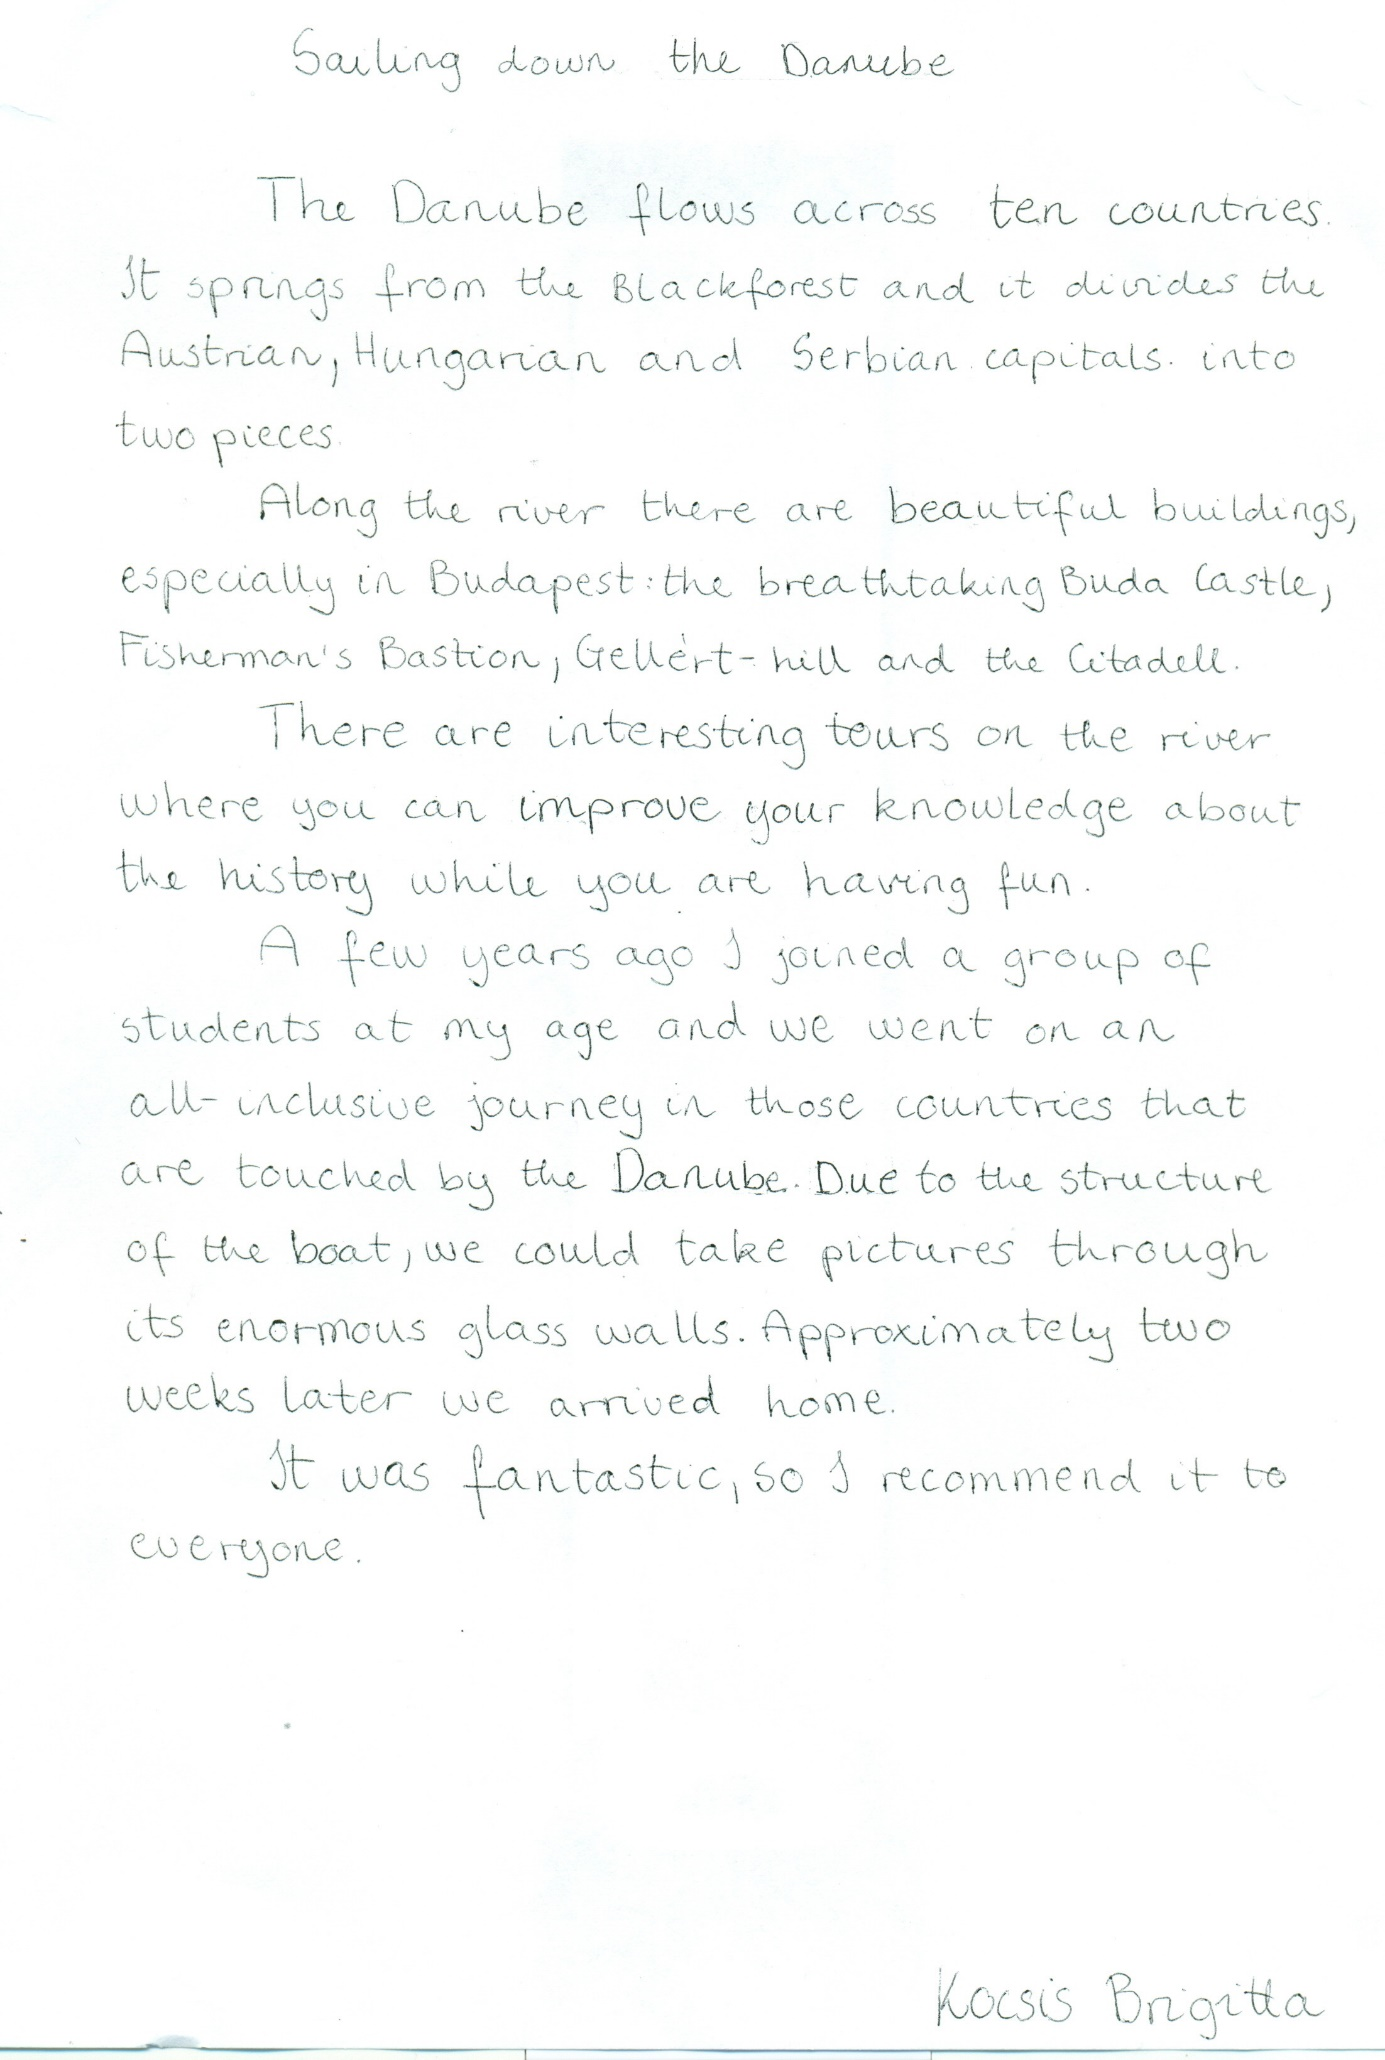 Sailing down the Danube
The Danube flows across ten countries.
It springs from the Blackforest and it divides the
Austrian, Hungarian and Serbian capitals. into
two pieces.
Along the river there are beautiful buildings,
especially in Budapest: the breathtaking Buda Castle,
Fisherman's Bastion, Gellért-hill and the Citadell.
There are interesting tours on the river
where you can improve your knowledge about
the history while you are having fun.
A few years ago I joined a group of
students at my age and we went on an
all-inclusive journey in those countries that
are touched by the Danube. Due to the structure
of the boat, we could take pictures through
its enormous glass walls. Approximately two
weeks later we arrived home.
It was fantastic, so I recommend it to
everyone.
Kocsis Brigitta